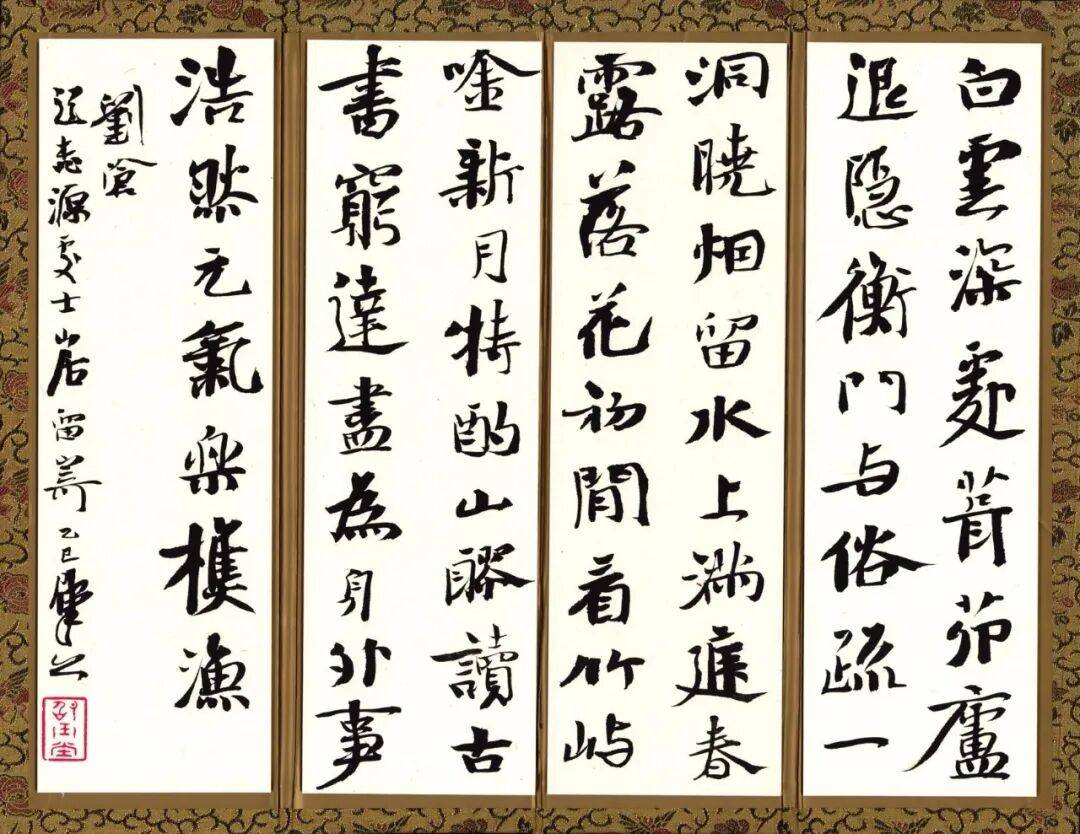 白雲深處葺茆廬
退隐衡門与俗疏一
洞曉烟留水上满庭春
露落花初閒看竹屿
唫新月特酌山醪讀古
書窮達盡為身外事
浩然元氣樂樵漁
劉滄
题志源處士山居留寄 乙巳